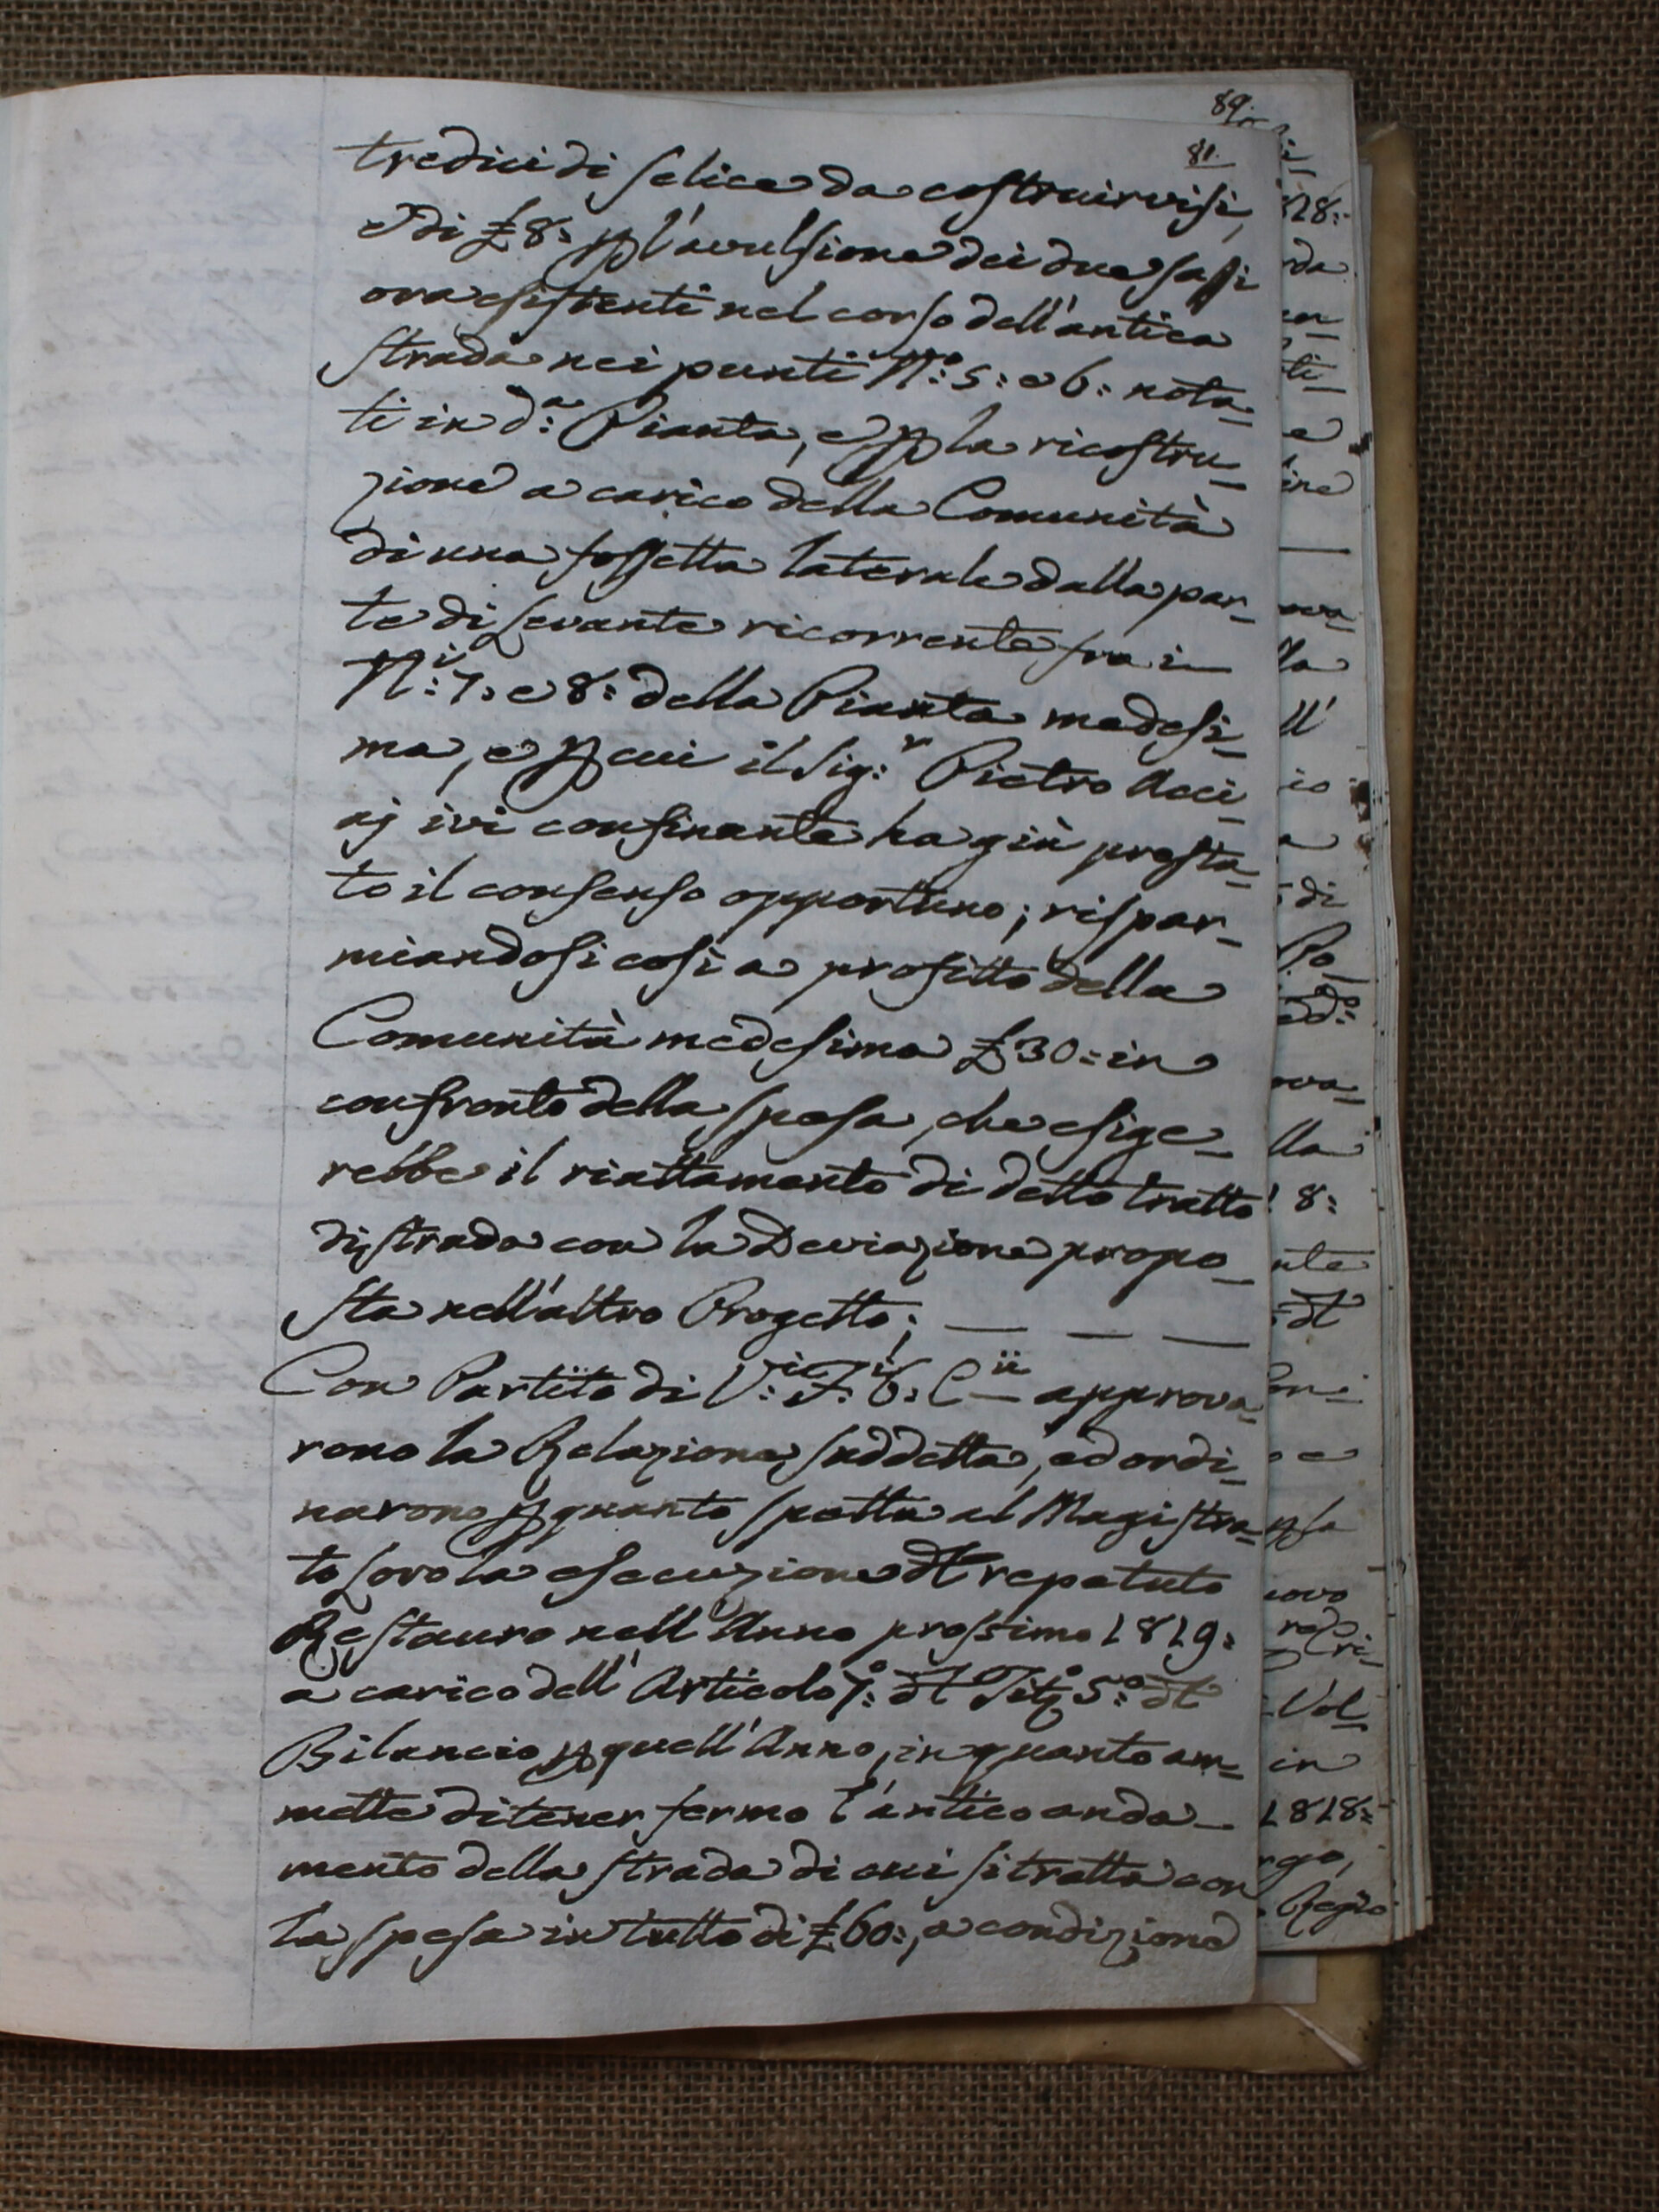 89.
81.
tredici di selice da costruirvisi,
e di £ 8: p l'avulsione dei due sassi
ora esistenti nel corso dell'antica
strada nei punti N.ro 5: e 6: nota-
ti in d.a Pianta, e p la ricostru-
zione a carico della Comunità
di una fossetta laterale dalla par-
te di Levante ricorrente fra i
N.i 7: e 8: della Pianta medesi-
ma, e p cui il Sig.r Pietro Acci-
aj ivi confinante ha già presta-
to il consenso opportuno; rispar-
miandosi così a profitto della
Comunità medesima £ 30= in
confronto della spesa, che esige-
rebbe il riattamento di detto tratto
di strada con la Deviazione propo-
sta nell'altro Progetto; — — —
Con Partito di V. F. 6: C approva-
rono la Relazione suddetta, ed ordi-
narono p quanto spetta al Magistra-
to Loro la esecuzione dl repetuto
Restauro nell'Anno prossimo 1819:
a carico dell'Articolo 7.o dl Tit.o 5.o dl
Bilancio p quell'Anno, in quanto am-
mette di tener fermo l'antico anda-
mento della strada di cui si tratta con
la spesa in tutto di £ 60:, a condizione